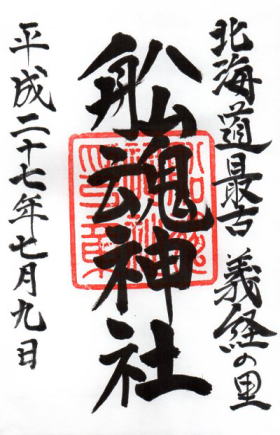 北海道最古 義経の里
船魂神社
平成二十七年七月九日